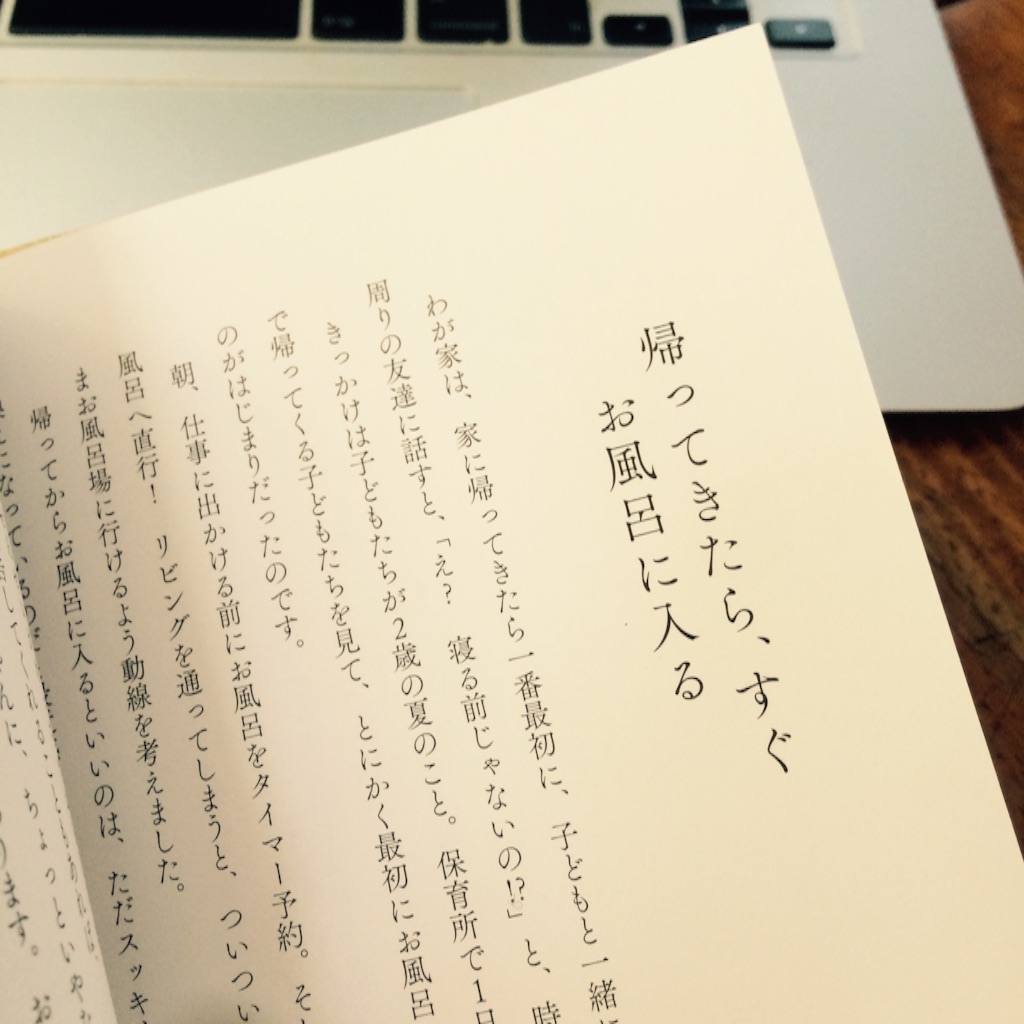 帰ってきたら、すぐ
お風呂に入る
わが家は、家に帰ってきたら一番最初に、子どもと一緒に
周りの友達に話すと、「え？　寝る前じゃないの!?」と、時
きっかけは子どもたちが2歳の夏のこと。保育所で1日
で帰ってくる子どもたちを見て、とにかく最初にお風呂
のがはじまりだったのです。
朝、仕事に出かける前にお風呂をタイマー予約。そ
風呂へ直行！　リビングを通ってしまうと、ついつい
まお風呂場に行けるよう動線を考えました。
帰ってからお風呂に入るといいのは、ただスッキ